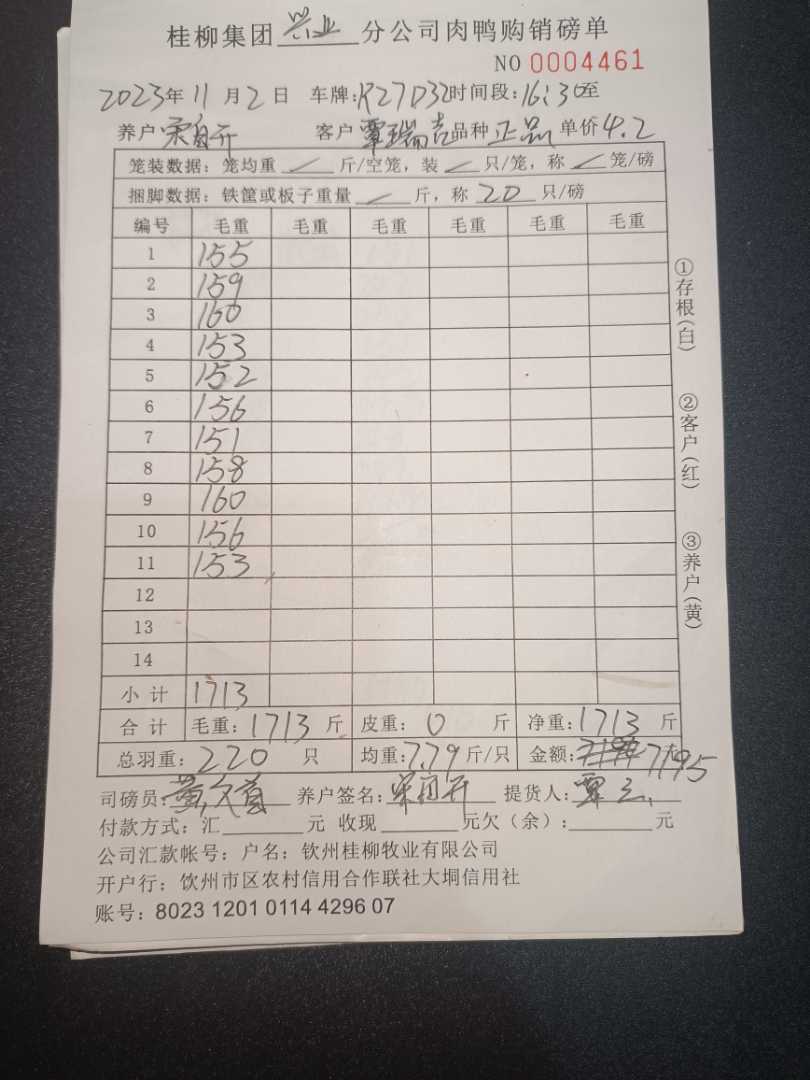 桂柳集团兴业分公司肉鸭购销磅单
NO 0004461
2023年11月2日 车牌:R27D32时间段:16:30至
养户 宋 客户 覃瑞吉 品种 正品 单价4.2
笼装数据：笼均重 斤/空笼，装 只/笼，称 笼/磅
捆脚数据：铁筐或板子重量 斤，称 20 只/磅
编号 毛重 毛重 毛重 毛重 毛重 毛重
1 155
2 159
3 160
4 153
5 152
6 156
7 151
8 158
9 160
10 156
11 153
12
13
14
小 计 1713
合 计 毛重：1713 斤 皮重：0 斤 净重：1713 斤
总羽重：220 只 均重：7.79 斤/只 金额：7195
司磅员： 养户签名：宋 提货人：覃
付款方式：汇 元 收现 元欠（余）： 元
公司汇款帐号：户名：钦州桂柳牧业有限公司
开户行：饮州市区农村信用合作联社大垌信用社
账号：8023 1201 0114 4296 07
①存根(白)
②客户(红)
③养户(黄)